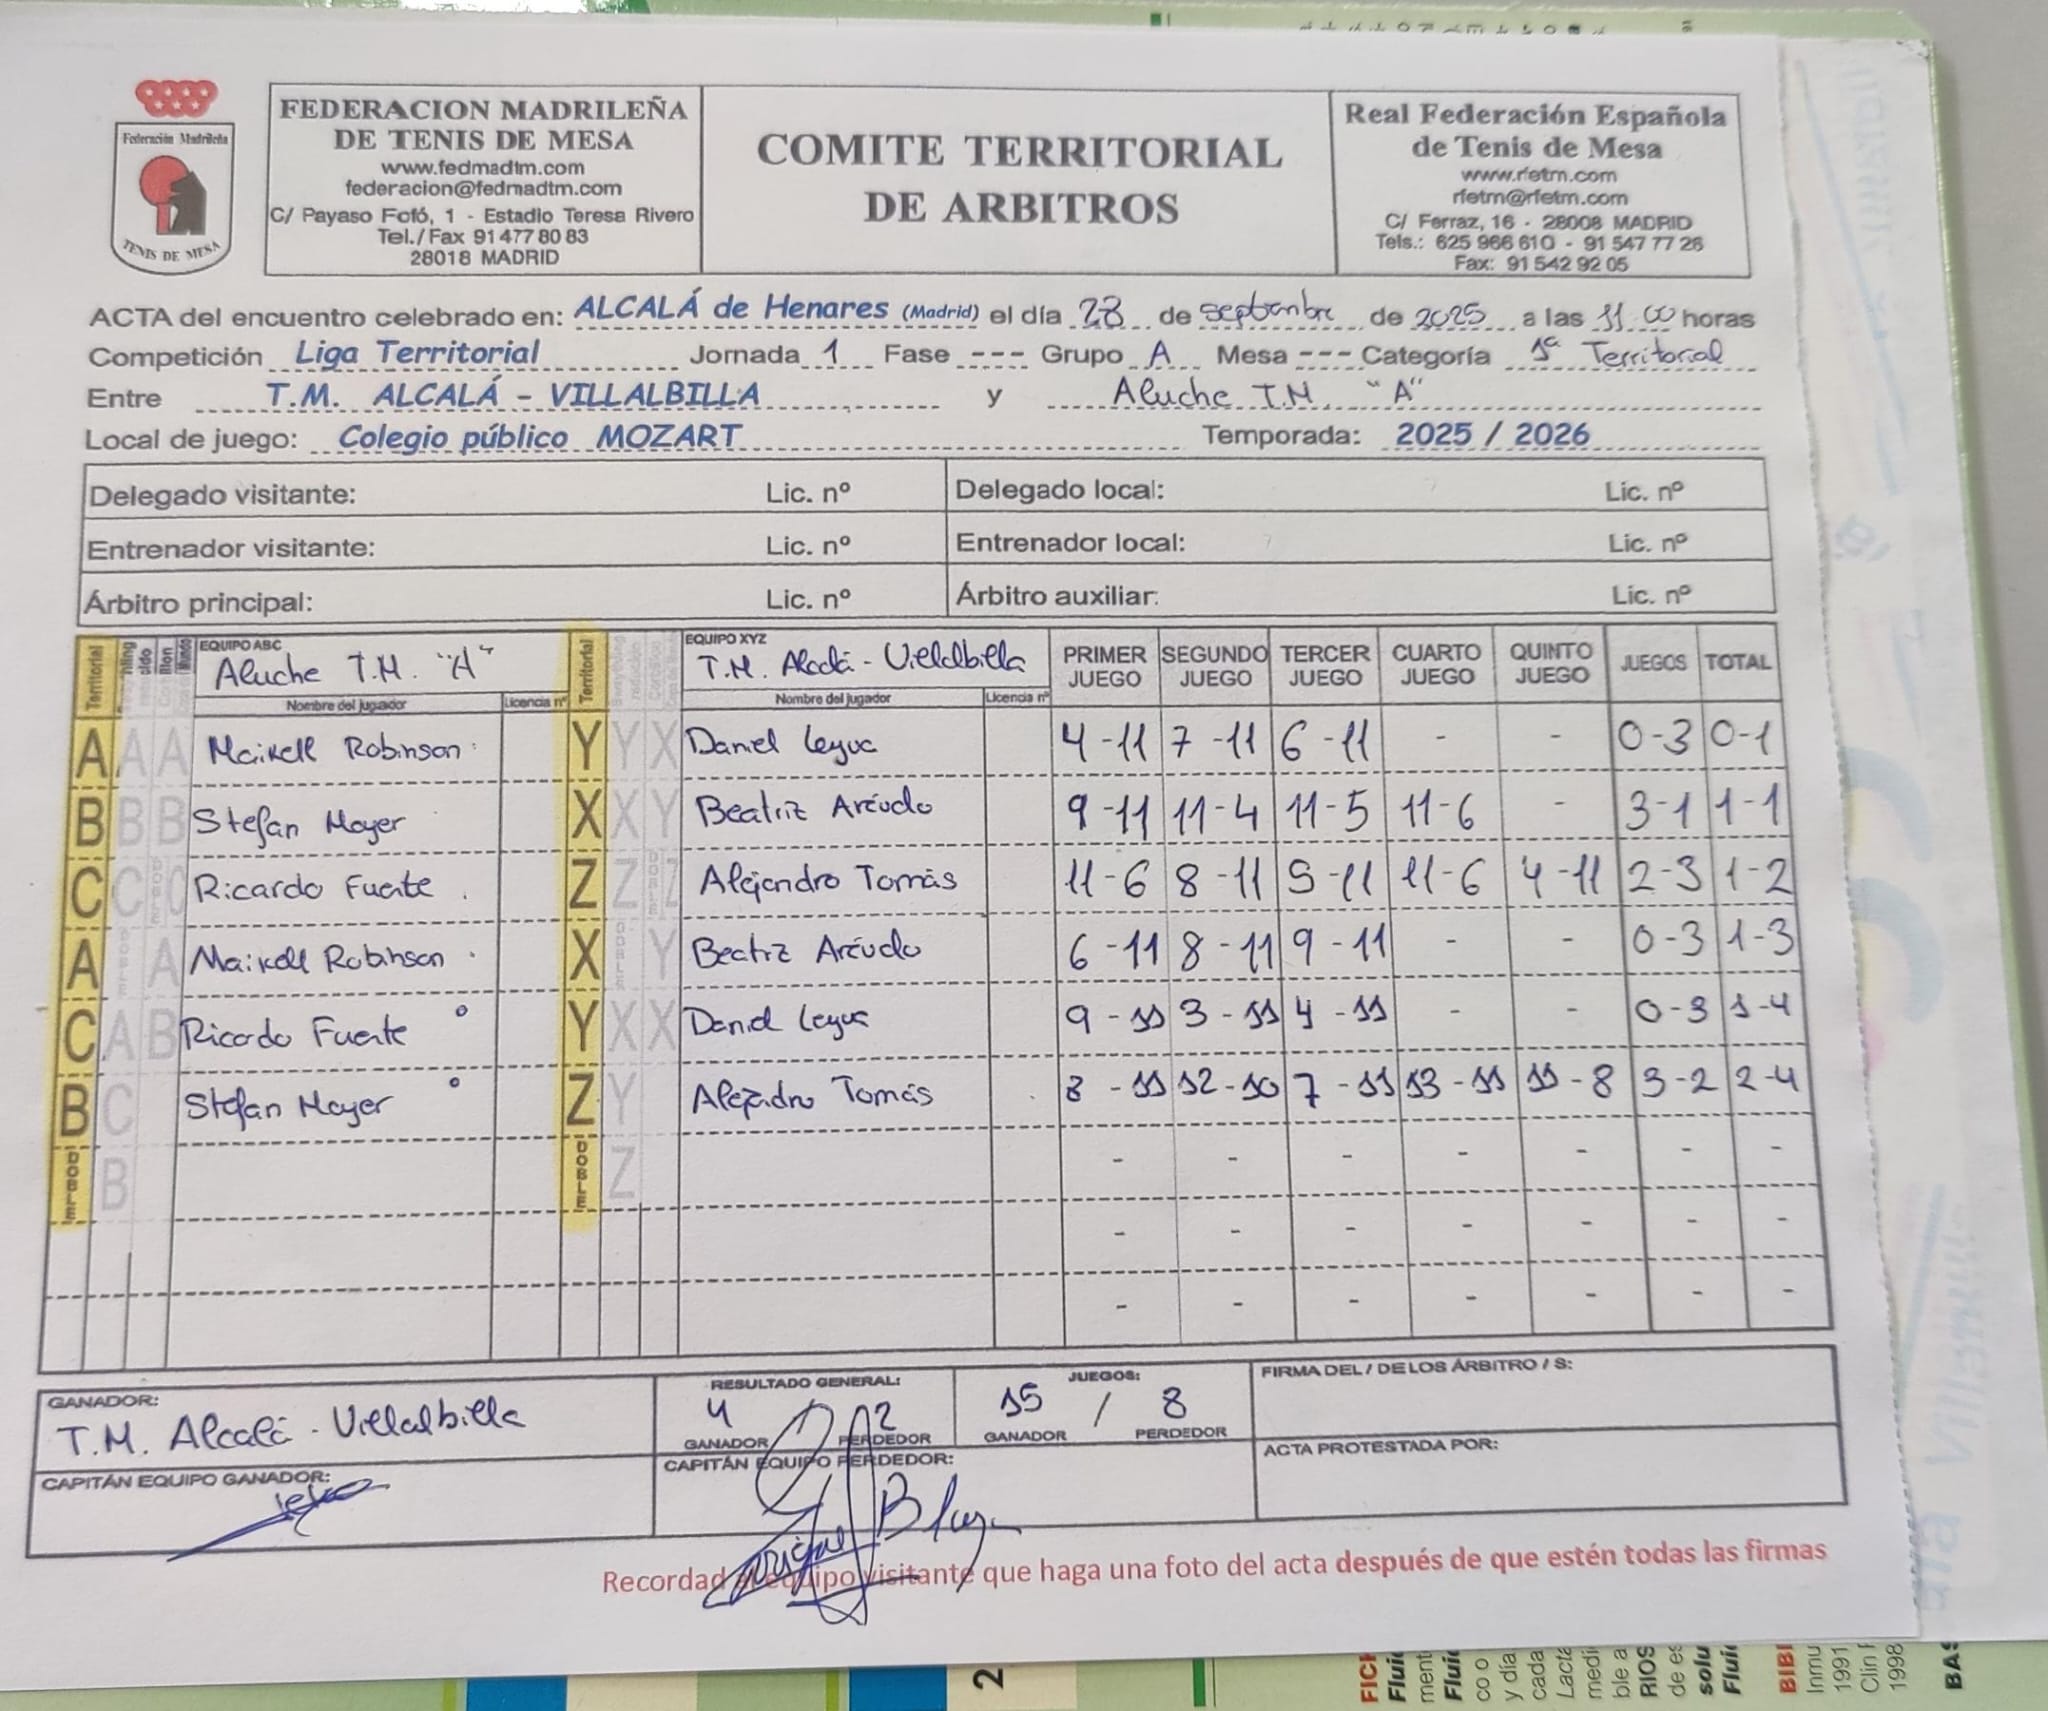 Federación Madrileña
TENIS DE MESA
FEDERACION MADRILEÑA
DE TENIS DE MESA
www.fedmadtm.com
federacion@fedmadtm.com
C/ Payaso Fofó, 1 - Estadio Teresa Rivero
Tel./Fax 91 477 80 83
28018 MADRID
COMITE TERRITORIAL
DE ARBITROS
Real Federación Española
de Tenis de Mesa
www.rfetm.com
rfetm@rfetm.com
C/ Ferraz, 16 - 28008 MADRID
Tels.: 625 966 610 - 91 547 77 26
Fax: 91 542 92 05
ACTA del encuentro celebrado en: ALCALÁ de Henares (Madrid) el día 28 de septiembre de 2025 a las 11:00 horas
Competición Liga Territorial Jornada 1 Fase --- Grupo A Mesa --- Categoría 1ª Territorial
Entre T.M. ALCALÁ - VILLALBILLA y Aluche T.M. "A"
Local de juego: Colegio público MOZART Temporada: 2025 / 2026
Delegado visitante: Lic. nº Delegado local: Lic. nº
Entrenador visitante: Lic. nº Entrenador local: Lic. nº
Árbitro principal: Lic. nº Árbitro auxiliar: Lic. nº
Territorial EQUIPO ABC Aluche T.M. "A" Territorial EQUIPO XYZ T.M. Alcalá - Villalbilla PRIMER JUEGO SEGUNDO JUEGO TERCER JUEGO CUARTO JUEGO QUINTO JUEGO JUEGOS TOTAL
Nombre del jugador Licencia nº Nombre del jugador Licencia nº
A A A Maikell Robinson Y Y X Daniel Leyva 4-11 7-11 6-11 - - 0-3 0-1
B B B Stefan Mayer X X Y Beatriz Arévalo 9-11 11-4 11-5 11-6 - 3-1 1-1
C C C Ricardo Fuente Z Z Z Alejandro Tomás 11-6 8-11 5-11 11-6 4-11 2-3 1-2
A A Maikell Robinson X Y Beatriz Arévalo 6-11 8-11 9-11 - - 0-3 1-3
C A B Ricardo Fuente Y X X Daniel Leyva 9-11 3-11 4-11 - - 0-3 1-4
B C Stefan Mayer Z Y Alejandro Tomás 8-11 12-10 7-11 13-11 11-8 3-2 2-4
DOBLE B DOBLE Z - - - - - - -
- - - - - - -
- - - - - - -
GANADOR: T.M. Alcalá - Villalbilla
RESULTADO GENERAL: 4 2
GANADOR PERDEDOR
JUEGOS: 15 / 8
GANADOR PERDEDOR
FIRMA DEL / DE LOS ÁRBITRO / S:
CAPITÁN EQUIPO GANADOR:
CAPITÁN EQUIPO PERDEDOR:
ACTA PROTESTADA POR:
Recordad al equipo visitante que haga una foto del acta después de que estén todas las firmas
2